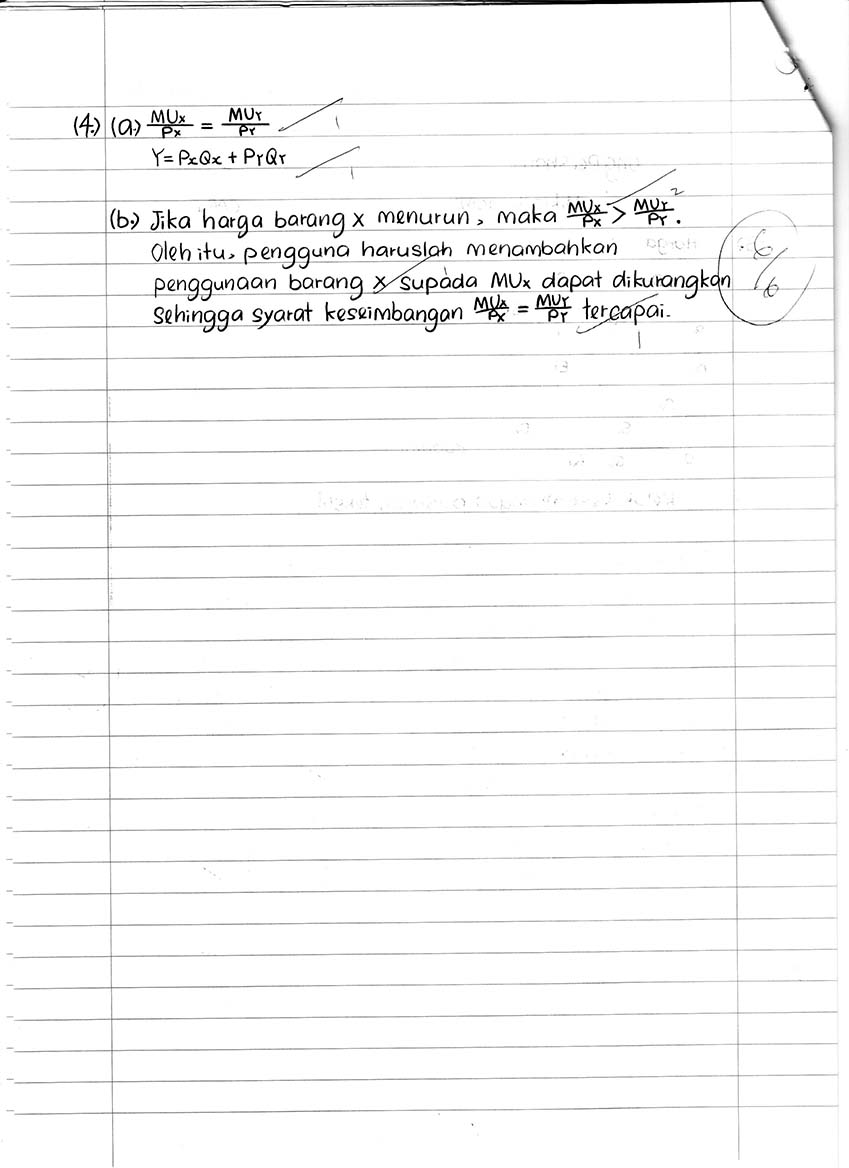 (4.) (a.) MUx/Px = MUY/PY 1
Y = PxQx + PYQY 1
(b.) Jika harga barang x menurun, maka MUx/Px > MUY/PY. 2
Oleh itu, pengguna haruslah menambahkan
penggunaan barang x supada MUx dapat dikurangkan
sehingga syarat keseimbangan MUx/Px = MUY/PY tercapai.
1
6/6